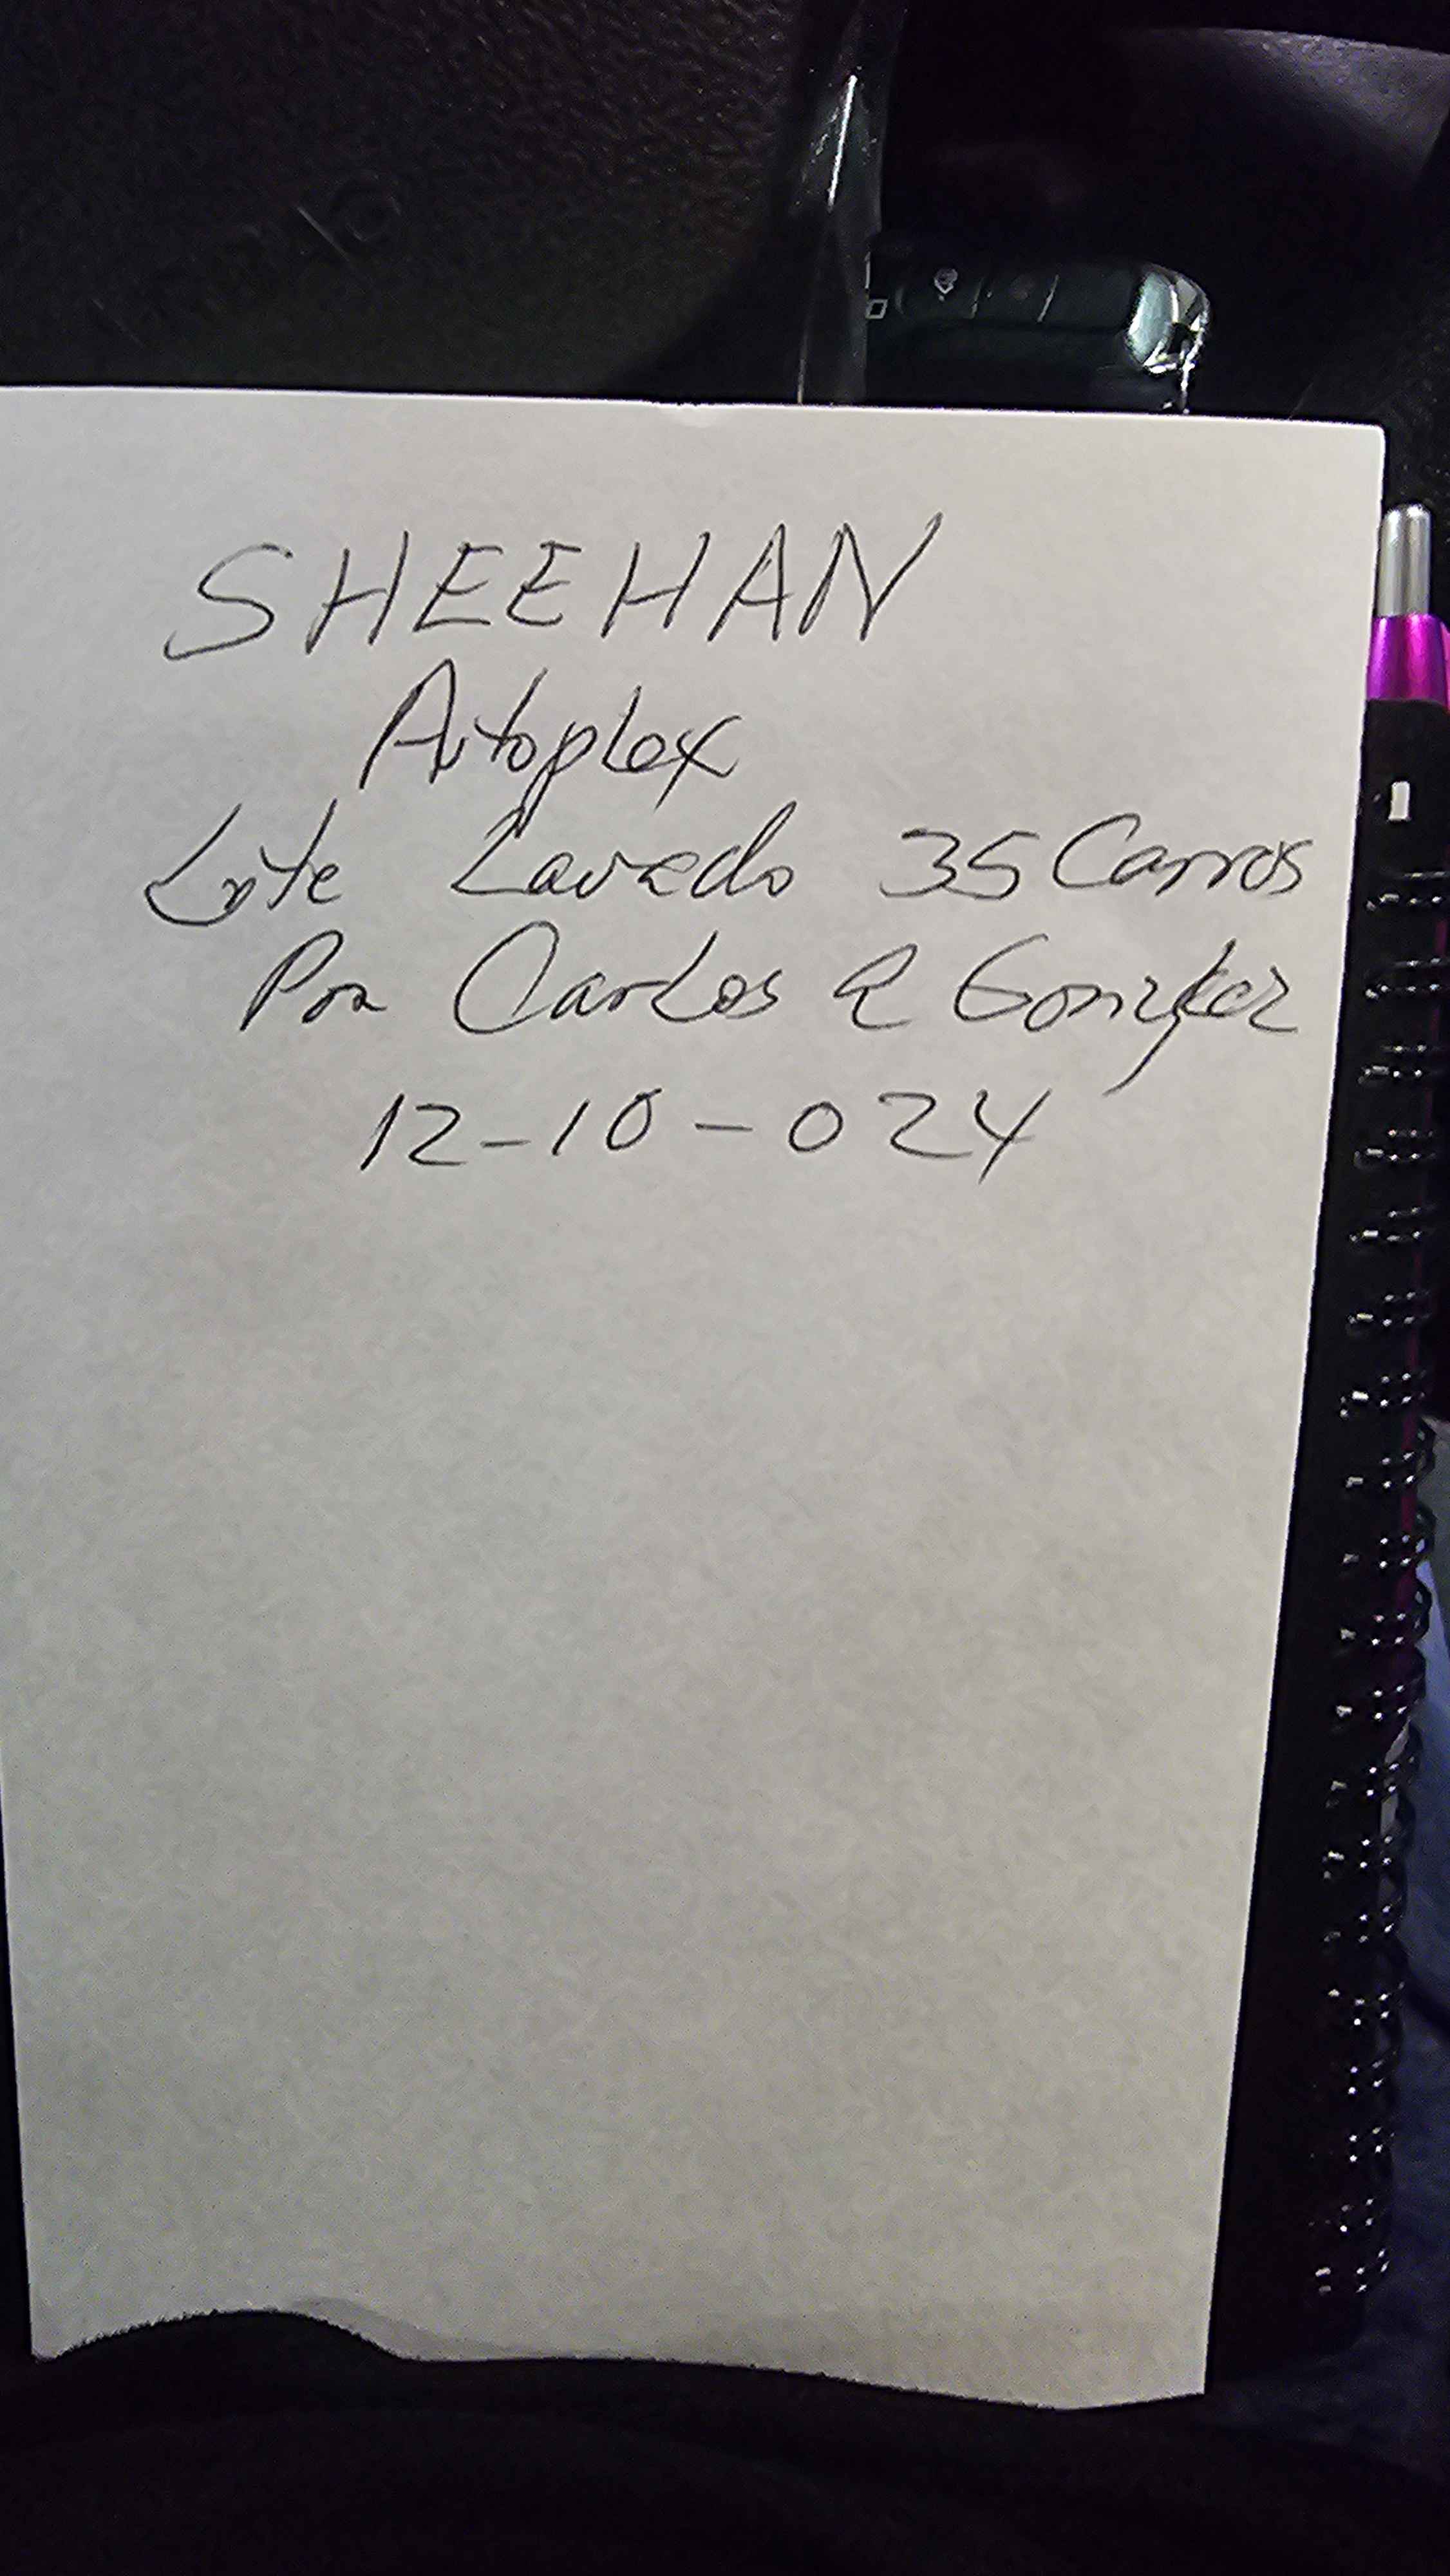 SHEEHAN
Autoplex
Lote Lavado 35 Carros
Por Carlos R Gonzalez
12-10-024